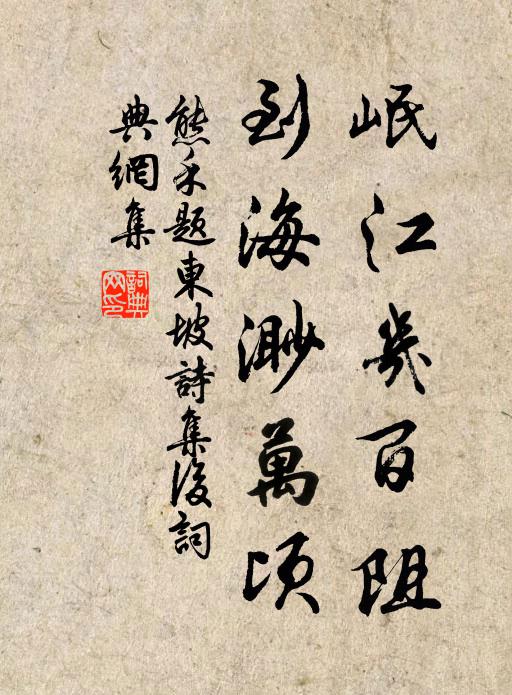 岷江幾百阻
到海渺萬頃
熊禾題東坡詩集後詞
典網集
詞典網印